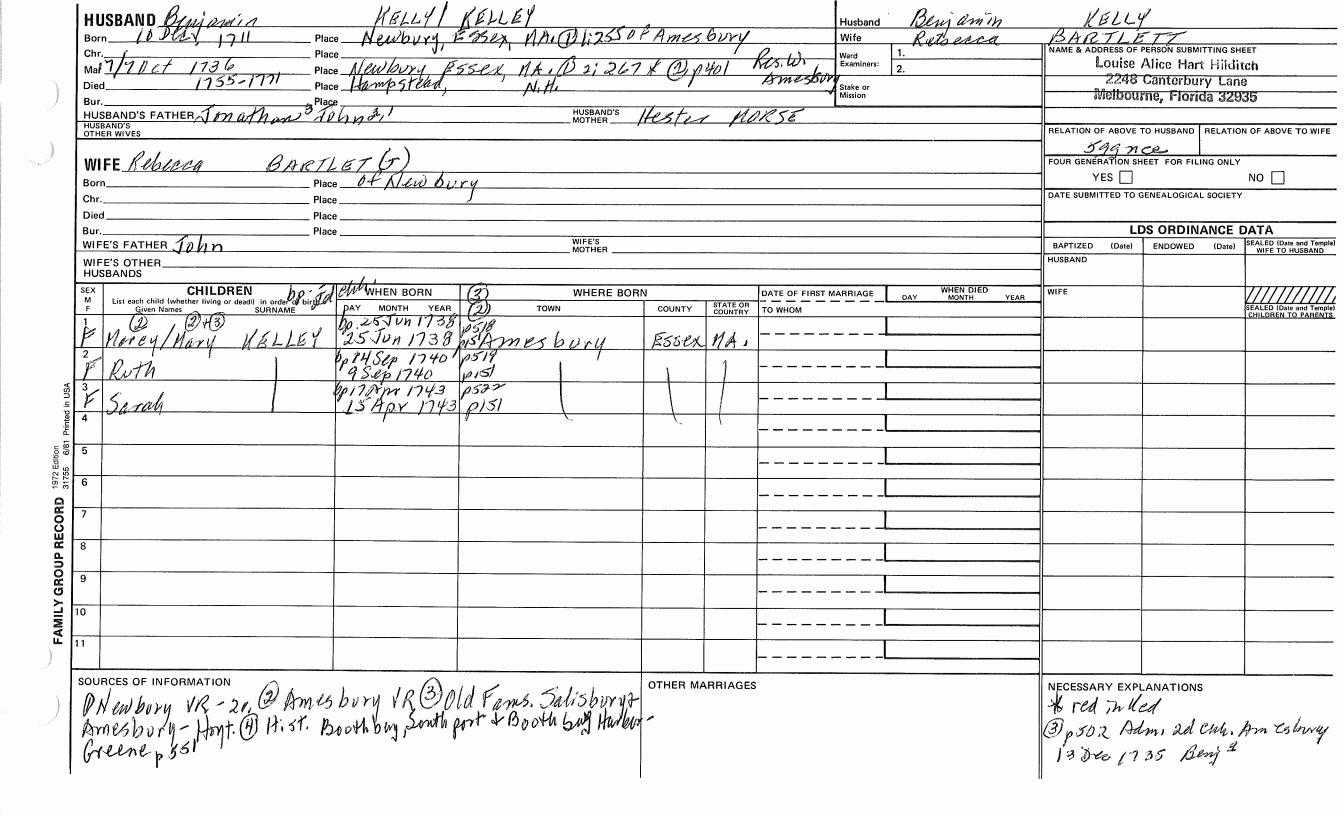 HUSBAND Benjamin KELLY / KELLEY
Born 10 Dec, 1711 Place Newbury, Essex, MA. ① 1:255 of Amesbury
Chr. Place
Mar 7/7 Oct 1736 Place Newbury Essex, MA. ① 2; 267 * ② p401 Res. W. Amesbury
Died 1755-1771 Place Hampstead, N.H.
Bur. Place
HUSBAND'S FATHER Jonathan 3 John 2, 1 HUSBAND'S MOTHER Hester MORSE
HUSBAND'S OTHER WIVES
WIFE Rebecca BARTLET(T)
Born Place of Newbury
Chr. Place
Died Place
Bur. Place
WIFE'S FATHER John WIFE'S MOTHER
WIFE'S OTHER HUSBANDS
Husband Benjamin KELLY
Wife Rebecca BARTLETT
Ward Examiners: 1.
2.
Stake or Mission
NAME & ADDRESS OF PERSON SUBMITTING SHEET
Louise Alice Hart Hilditch
2248 Canterbury Lane
Melbourne, Florida 32935
RELATION OF ABOVE TO HUSBAND RELATION OF ABOVE TO WIFE
5ggnce
FOUR GENERATION SHEET FOR FILING ONLY
YES NO
DATE SUBMITTED TO GENEALOGICAL SOCIETY
LDS ORDINANCE DATA
BAPTIZED (Date) ENDOWED (Date) SEALED (Date and Temple) WIFE TO HUSBAND
HUSBAND
WIFE
SEALED (Date and Temple) CHILDREN TO PARENTS
SEX M F
CHILDREN
List each child (whether living or dead) in order of birth
Given Names SURNAME
bp. 2d chh.
WHEN BORN
DAY MONTH YEAR
③
②
WHERE BORN
TOWN COUNTY STATE OR COUNTRY
DATE OF FIRST MARRIAGE
TO WHOM
WHEN DIED
DAY MONTH YEAR
② ②+③
1 bp. 25 Jun 1738 p518
F Mercy/Mary KELLEY 25 Jun 1738 p151 Amesbury Essex MA.
2 bp 14 Sep 1740 p519
F Ruth 9 Sep 1740 p151
3 bp 17 Apr 1743 p522
F Sarah 15 Apr 1743 p151
4
5
6
7
8
9
10
11
FAMILY GROUP RECORD 1972 Edition 31756 6/81 Printed in USA
SOURCES OF INFORMATION
① Newbury VR - 2v. ② Amesbury VR ③ Old Fams. Salisbury +
Amesbury - Hoyt. ④ Hist. Boothbay, Southport & Boothbay Harbor -
Greene p 551
OTHER MARRIAGES
NECESSARY EXPLANATIONS
* red inked
③ p502 Adm. 2d chh. Amesbury
13 Dec 1735 Benj a